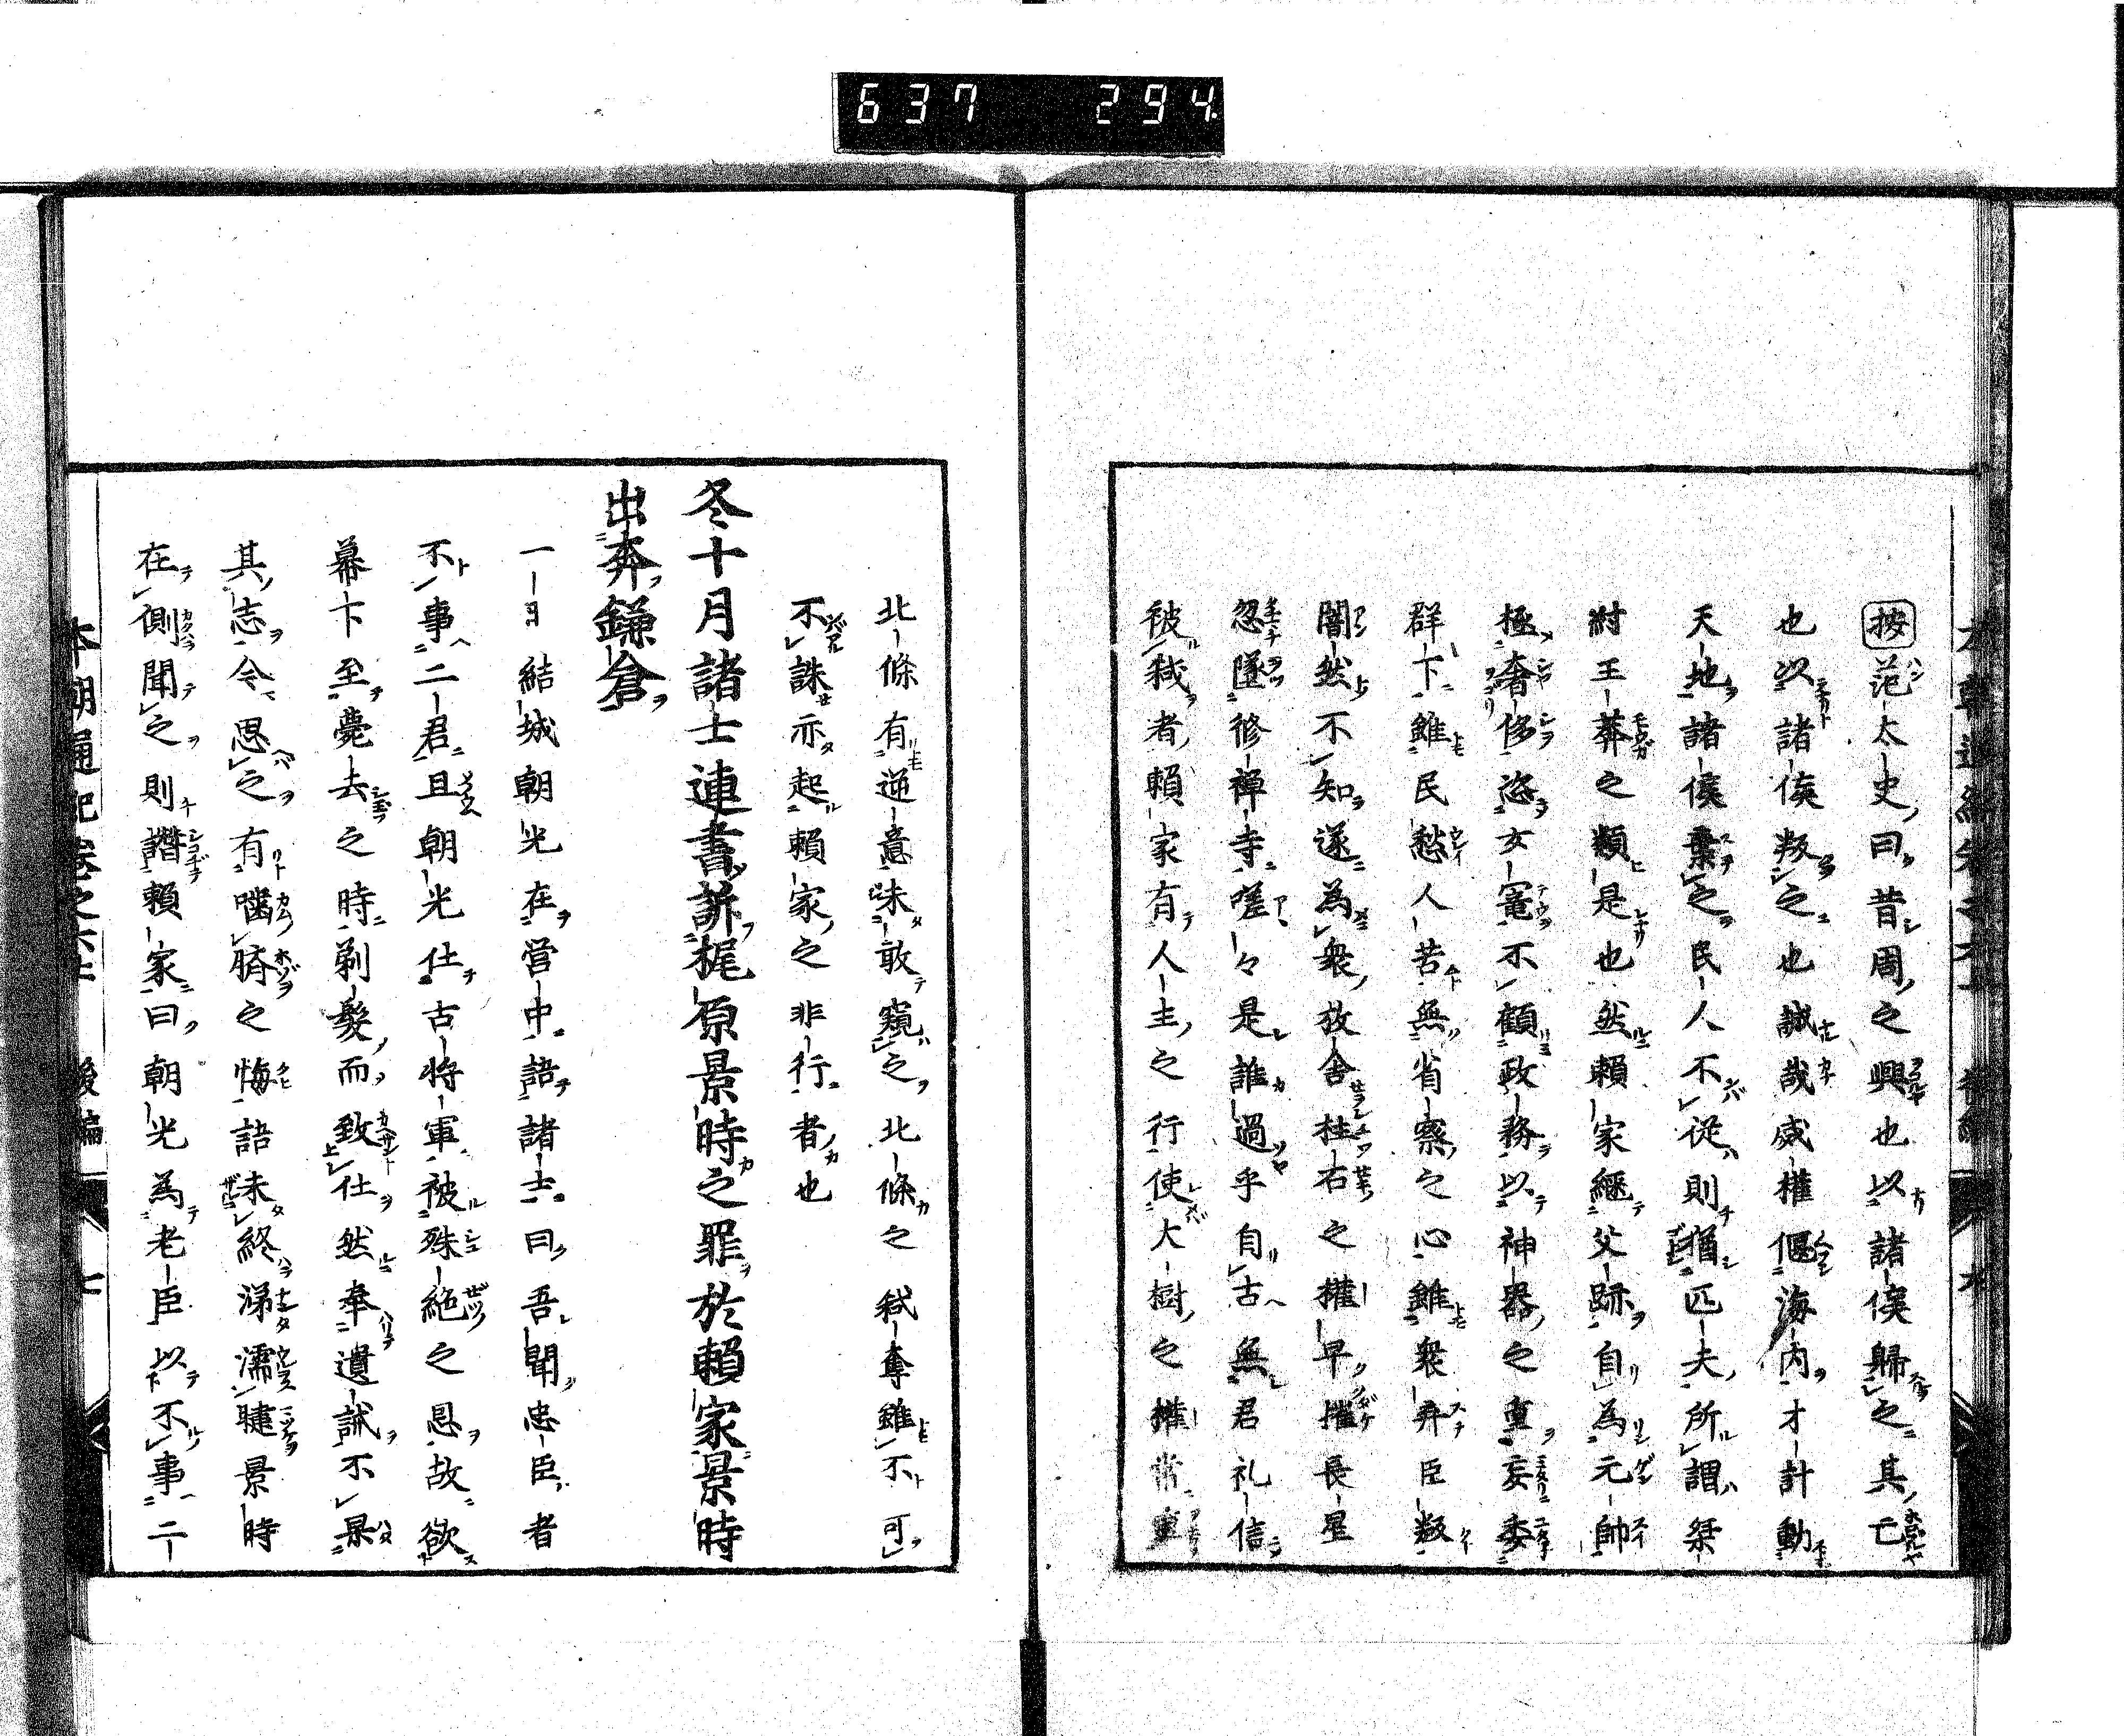 637 294
按范太史曰昔周之興也以諸侯歸之其亡
也以諸侯叛之也誠哉威權偃海内才計動
天地諸侯棄之民人不從則猶匹夫所謂桀
紂王莽之類是也然賴家繼父跡自為元帥
極奢侈恣女寵不顧政務以神器之重妄委
群下雖民愁人苦無省察之心雖衆弃臣叛
闇然不知遂為衆放舍柱石之權早摧長星
忽墜修禪寺嗟々是誰過乎自古無君礼信
被弑者賴家有人主之行使大樹之權常重
北條有逆意未敢窺之北條之弑奪雖不可
不誅亦起賴家之非行者也
冬十月諸士連書訴梶原景時之罪於賴家景時
出奔鎌倉
一日結城朝光在営中語諸士曰吾聞忠臣者
不事二君且朝光仕古将軍被殊絶之恩故欲
幕下至薨去之時剃髮而致仕然奉遺誡不果
其志今思之有噬臍之悔語未終涕濡睫景時
在側聞之則譖賴家曰朝光為老臣以不事二
本朝通紀卷之六 後編 七